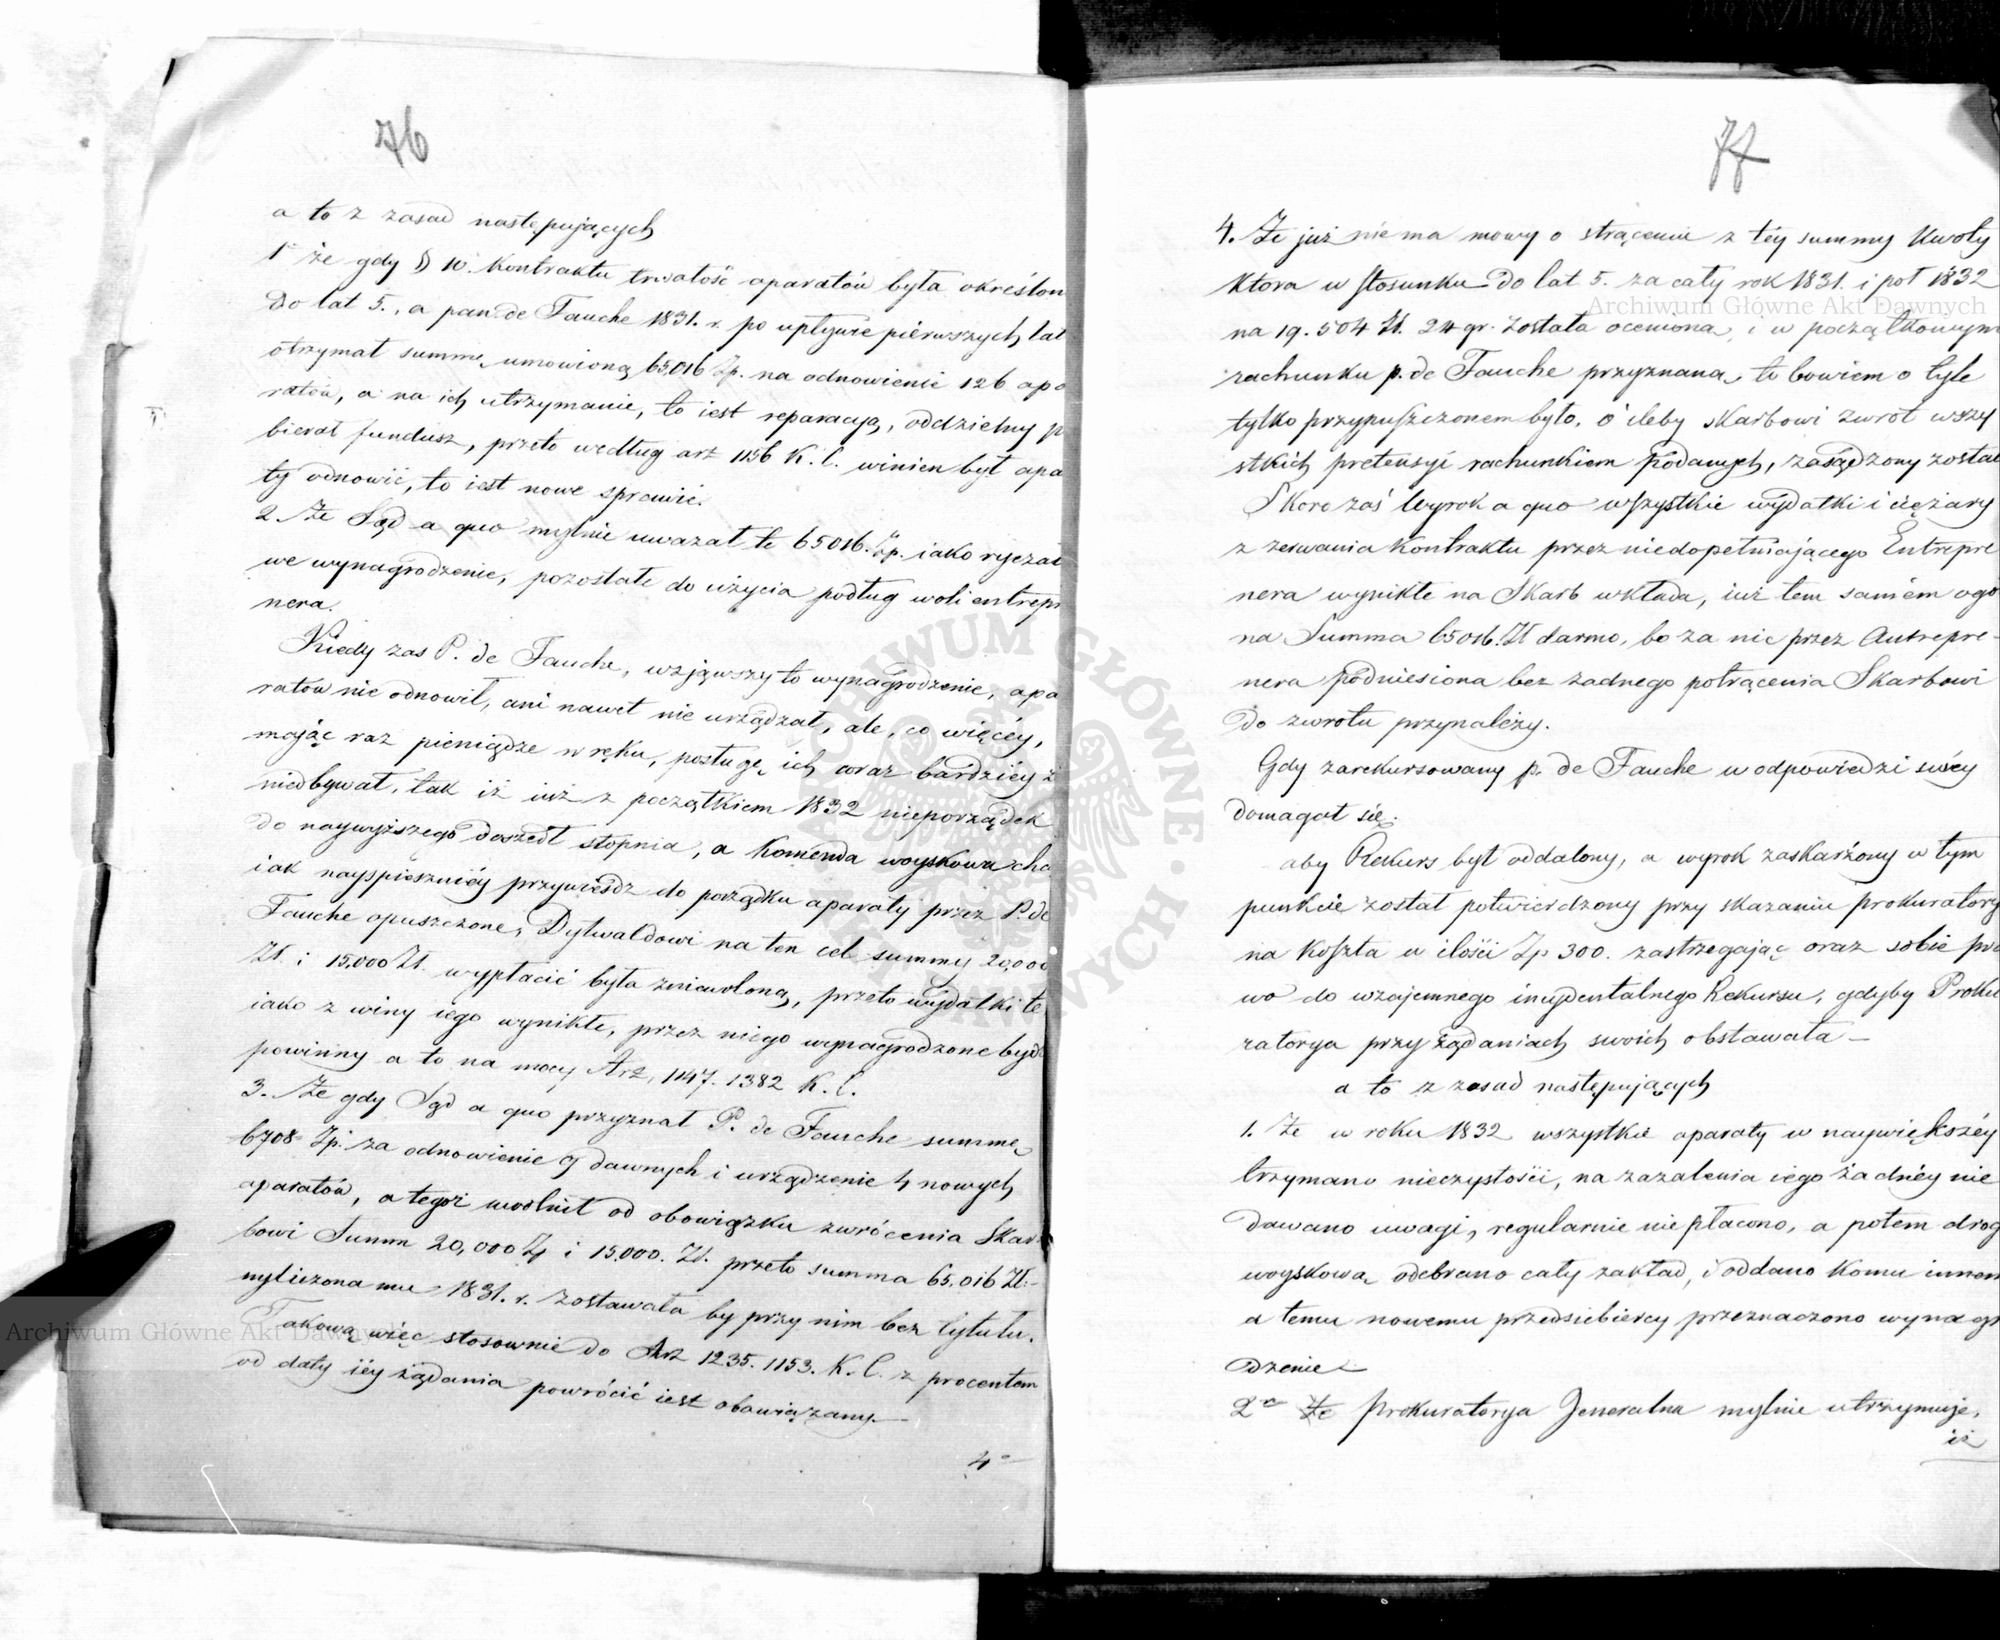 76
a to z zasad następujących
1º że gdy § 10. Kontraktu trwałość aparatów była określon
do lat 5., a pan de Fauche 1831. r. po upływie pierwszych lat
otrzymał summę umowioną 65,016 Zp. na odnowienie 126 apa
ratów, a na ich utrzymanie, to iest reparacyą, oddzielny p
bierał fundusz, przeto według art 1156 K. C. winien był apa
ty odnowić, to iest nowe sprawić.
2. Że Sąd a quo mylnie uważał te 65016. Zp. iako ryczał
we wynagrodzenie, pozostałe do użycia podług woli entrepr
nera.
Kiedy zas P. de Fauche, wziąwszy to wynagrodzenie, apa
ratów nie odnowił, ani nawet nie urządzał, ale, co więcéy,
mając raz pieniądze w ręku, posługę ich coraz bardziéy z
niedbywał, tak iż iuż z początkiem 1832 nieporządek
do naywyższego doszedł stopnia, a Komenda woyskowa chc
iak nayspieszniéy przywieśdz do porządku aparaty przez P. de
Fauche opuszczone, Dytwaldowi na ten cel summy 20,000
Zł. i 15,000 Zł. wypłacić była zniewoloną, przeto wydatki te
iako z winy iego wynikłe, przez niego wynagrodzone bydź
powinny a to na mocy Art. 1147. 1382 K. C.
3. Że gdy Sąd a quo przyznał P. de Fauche summę
6708 Zp. za odnowienie 9 dawnych i urządzenie 4 nowych
aparatów, a tegoż uwolnił od obowiązku zwrócenia Skar
bowi Summ 20,000 Zł i 15,000. Zł. przeto summa 65,016 Zł.
wyliczona mu 1831. r. zostawała by przy nim bez tytułu.
Takową więc stosownie do Art 1235. 1153. K. C. z procentem
od daty iéy żądania powrócić iest obowiązany.
4º
77
4. Że już nie ma mowy o strąceniu z téy summy kwoty
ktora w stosunku do lat 5. za cały rok 1831. i poł 1832
na 19.504 Zł. 24 gr. została oceniona, i w początkowym
rachunku p. de Fauche przyznana, to bowiem o tyle
tylko przypuszczonem było, o ileby skarbowi zwrot wszy
stkich pretensyi rachunkiem podanych, zasądzony został
Skoro zaś Wyrok a quo wszystkie wydatki i ciężary
z zerwania Kontraktu przez niedopełniającego Entrepre
nera wynikłe na Skarb wkłada, iuż tem samém ogo
na Summa 65016. Zł darmo, bo za nic przez Antrepre-
nera podniesiona bez żadnego potrącenia Skarbowi
do zwrotu przynależy.
Gdy zarekursowany p. de Fauche w odpowiedzi swéy
domagał się.
aby Rekurs był oddalony, a wyrok zaskarżony w tym
punkcie został potwierdzony przy skazaniu prokuratory
na koszta w ilości Zp 300. zastrzegając oraz sobie pra
wo do wzajemnego incydentalnego Rekursu, gdyby Proku
ratorya przy żądaniach swoich obstawała –
a to z zasad następujących
1. Że w roku 1832 wszystkie aparaty w naywiększéy
trzymano nieczystości, na zażalenia iego żadnéy nie
dawano uwagi, regularnie nie płacono, a potem drog
woyskową odebrano cały zakład, i oddano komu innem
a temu nowemu przedsiebiercy przeznaczono wynagr
dzenie
2º Że Prokuratorya Jeneralna mylnie utrzymuje,
iż
Archiwum Główne Akt Dawnych
Archiwum Główne Akt Dawnych
ARCHIWUM GŁÓWNE AKT DAWNYCH